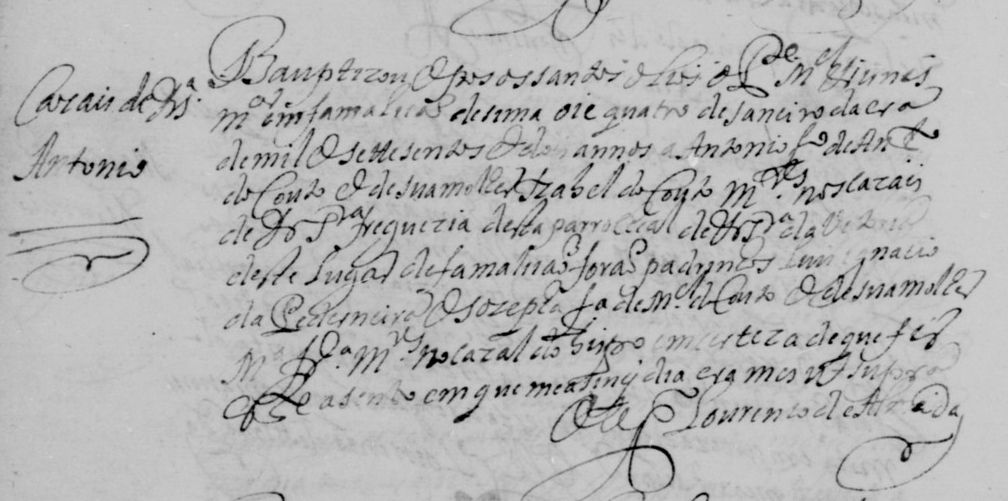 Cazais de N Sra
Antonio
Bauptizou e pos os santos olios o Pe Mel Gimes
mor em famalicão desima oie quatro de Janeiro da era
de mil e settesentos e dois annos a Antonio fo de Anto
do Couto e de sua molher Izabel do Couto Mres nos cazais
de N Sra freguezia desta parrochial de N Sra da Vitoria
deste lugar de famalicão forão padrinhos Luis Ignacio
da Pederneira e Jozepha fa de Mel do Couto e de sua molher
Ma Mres no cazal do em certeza de que fis
este asento em que me asiney dia era mes ut supra
O Pe Lourenco de Almeida